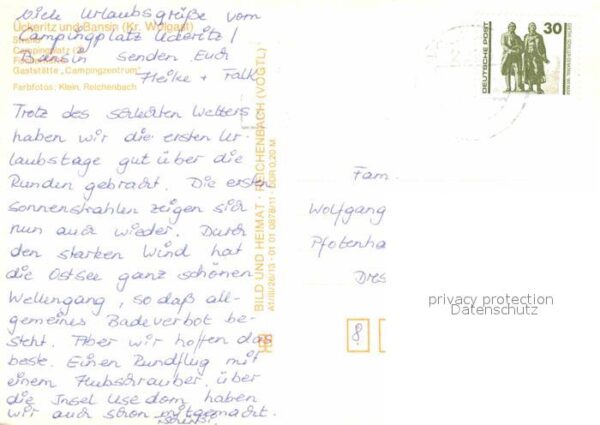 Viele Urlaubsgrüße vom
Campingplatz Ückeritz /
Bansin senden Euch
Heike + Falk
Ückeritz und Bansin (Kr. Wolgast)
Strand
Campingplatz (2)
Gaststätte „Campingzentrum“
Farbfotos: Klein, Reichenbach
Trotz des schlechten Wetters
haben wir die ersten Ur-
laubstage gut über die
Runden gebracht. Die ersten
Sonnenstrahlen zeigen sich
nun auch wieder. Durch
den starken Wind hat
die Ostsee ganz schönen
Wellengang, so daß all-
gemeines Badeverbot be-
steht. Aber wir hoffen das
beste. Einen Rundflug mit
einem Hubschrauber, über
die Insel Usedom haben
wir auch schon mitgemacht.
BILD UND HEIMAT · REICHENBACH (VOGTL)
A1/III/26/13 · 01 01 0878/11 · DDR 0,20 M
DEUTSCHE POST
30
Fam.
Wolfgang
Pfotenha
Dres
8
privacy protection
Datenschutz